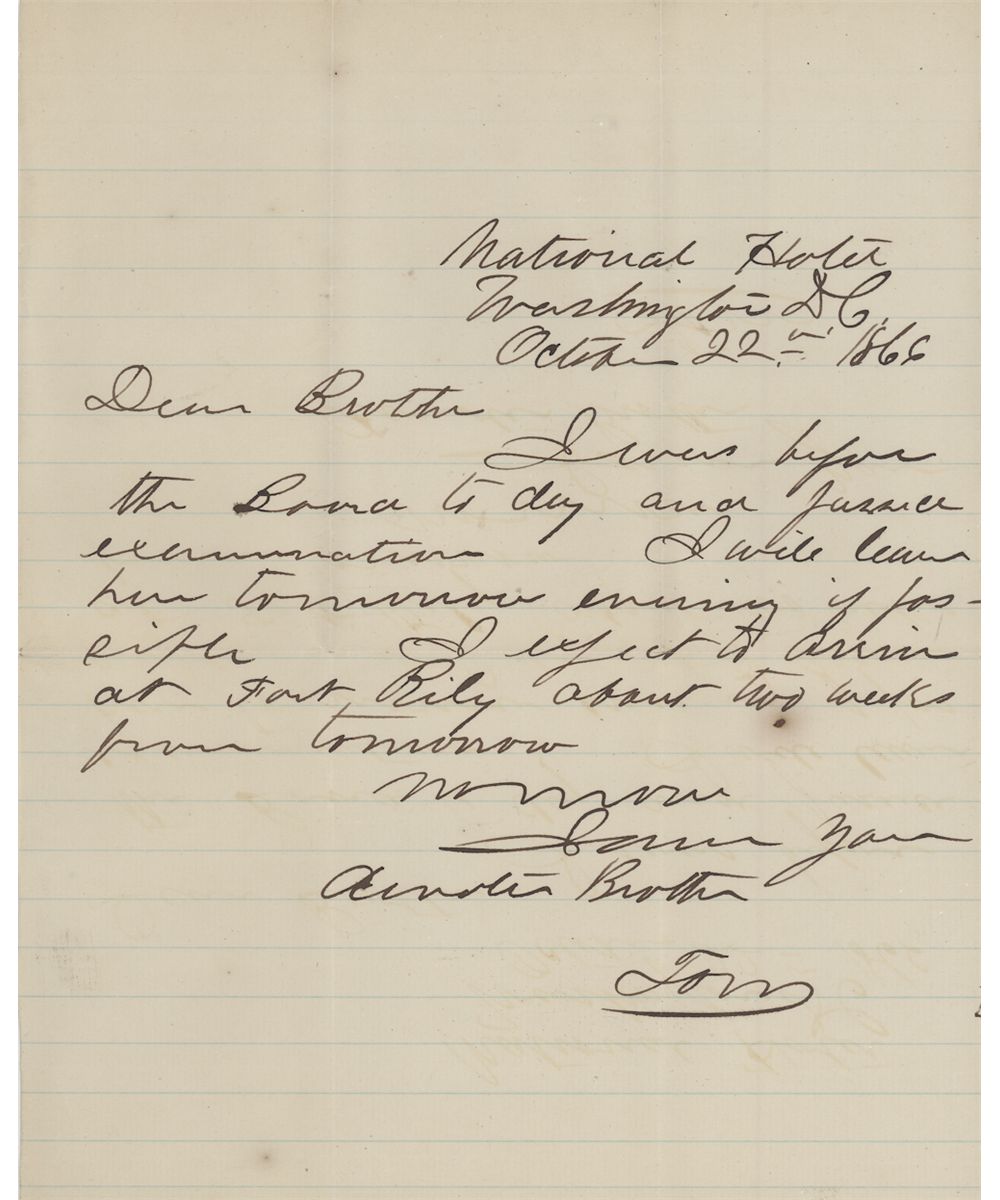 National Hotel
Washington D.C.
October 22nd 1866
Dear Brother
I was before
the Board to day and passed
examination I will leave
here tomorrow evening if pos-
sible I expect to arrive
at Fort Rily about two weeks
from tomorrow
No more
I am your
devoted Brother
Tom